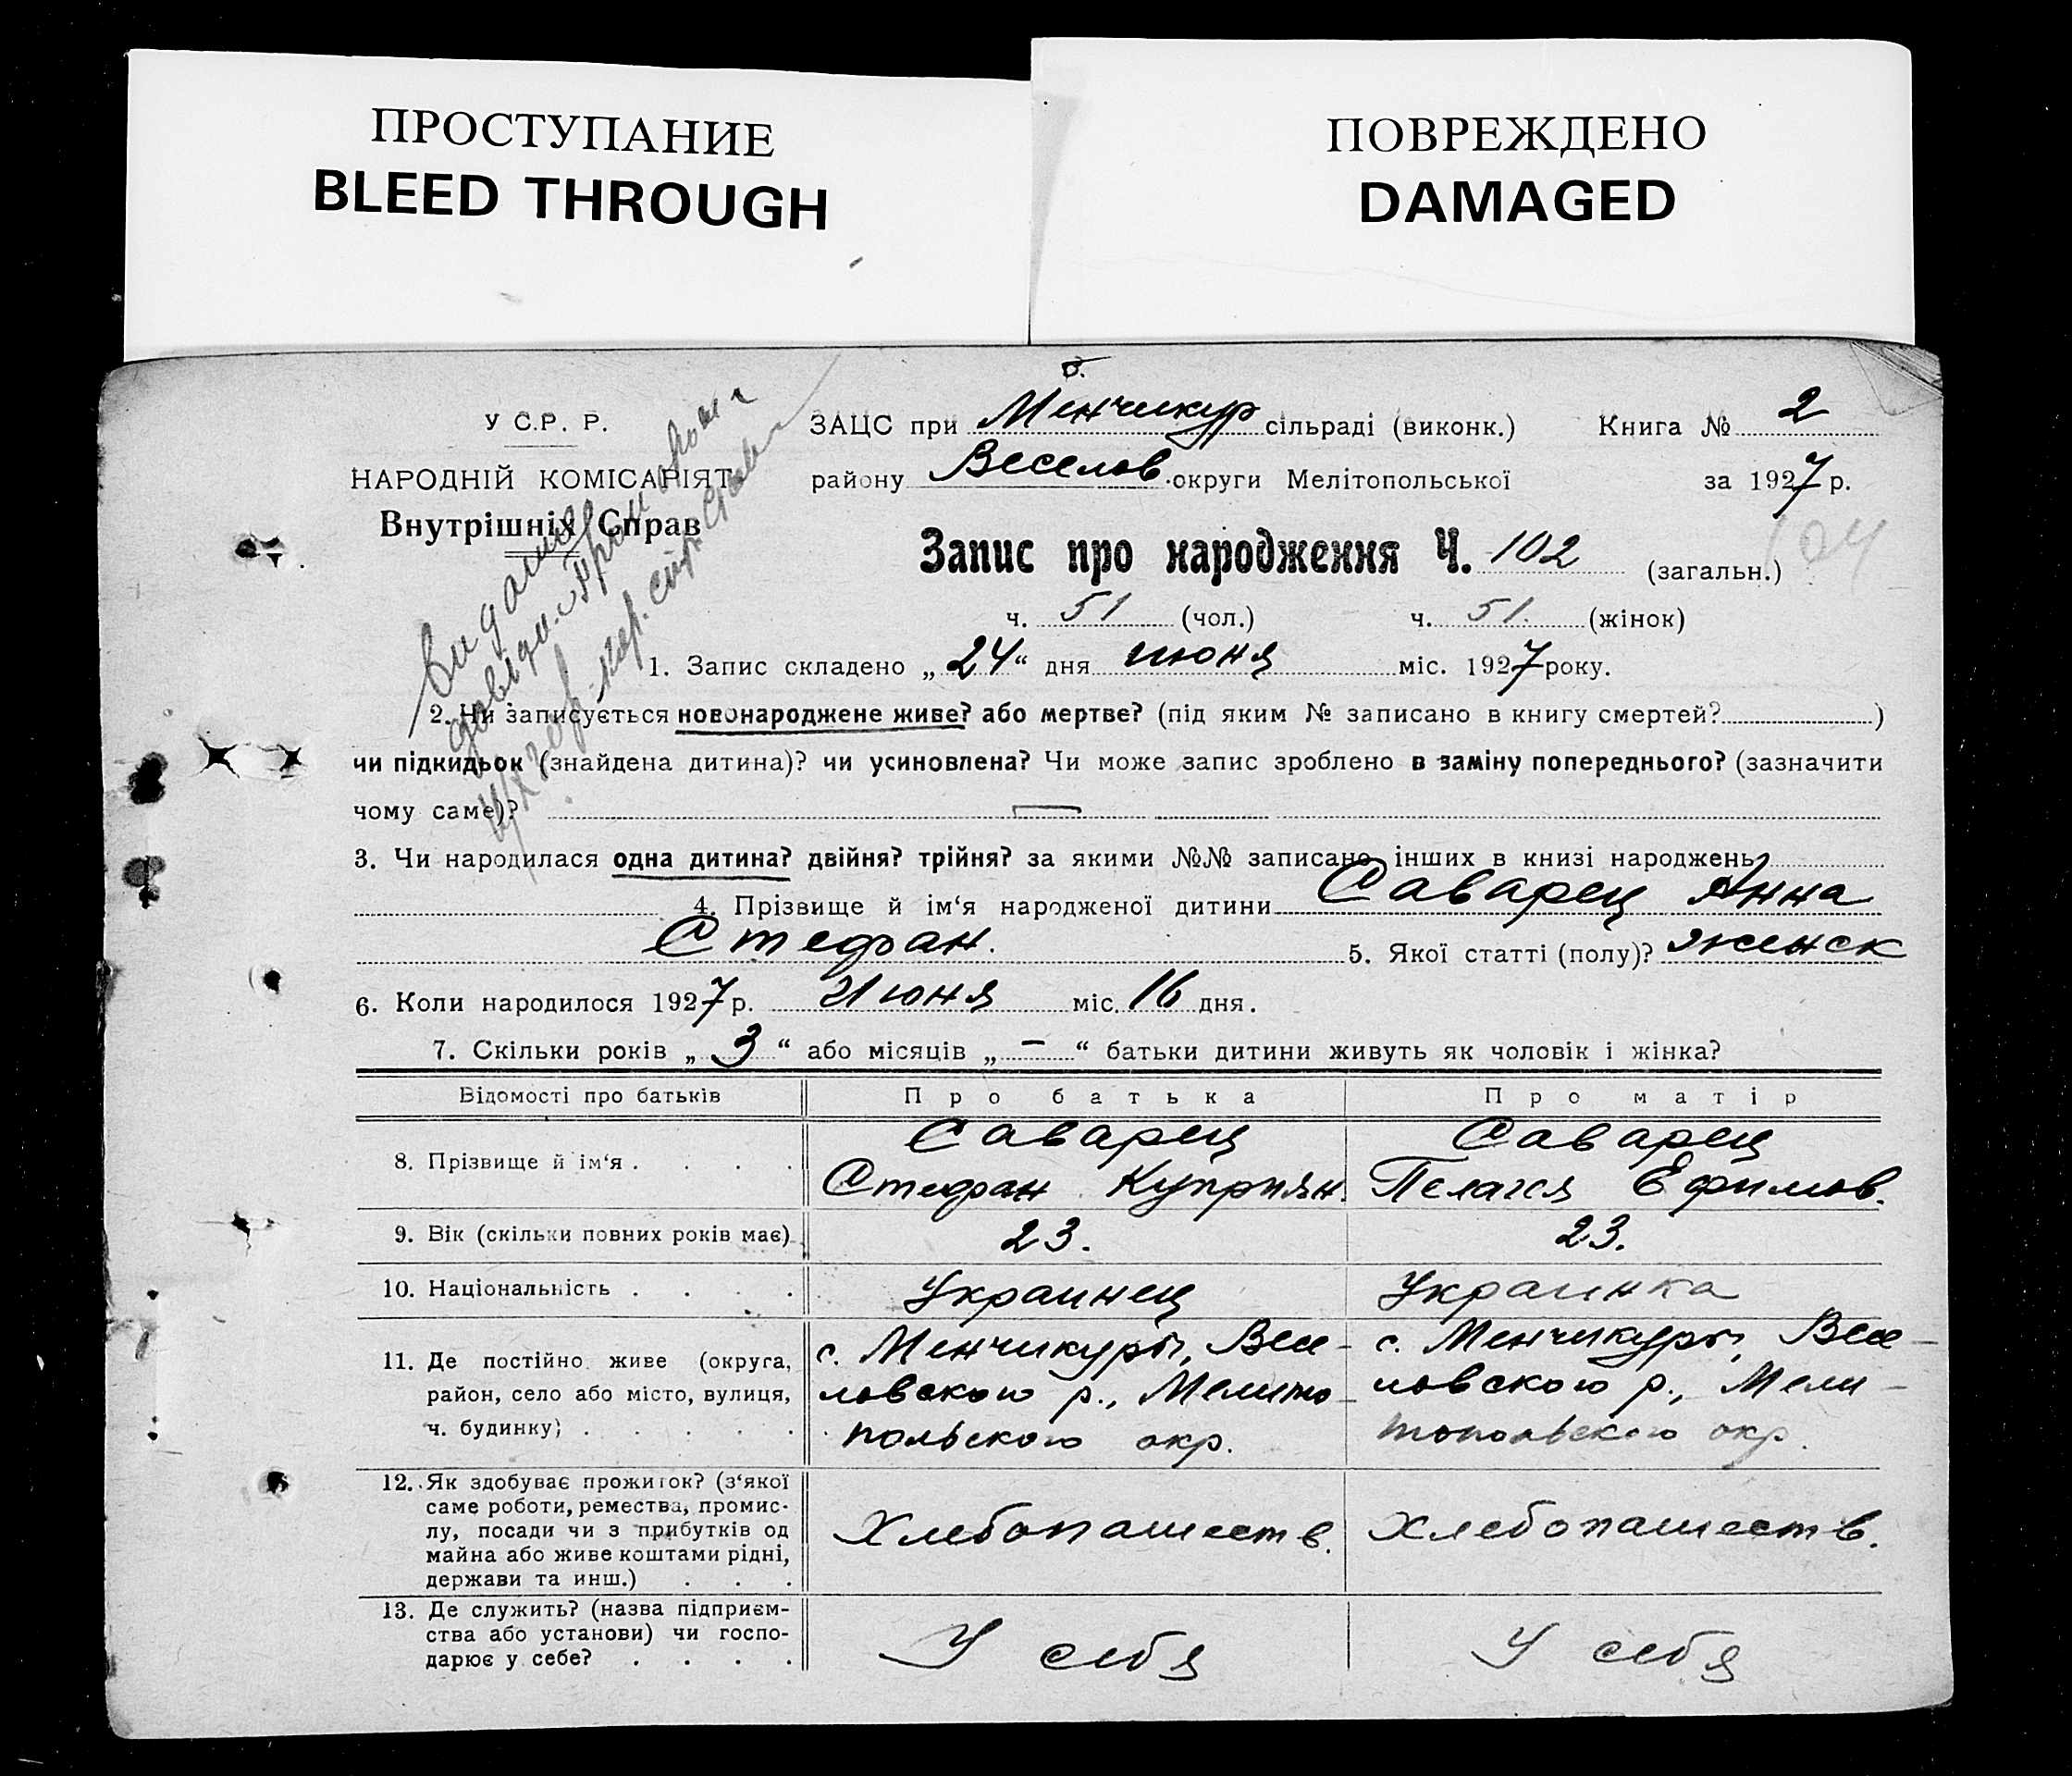 ПРОСТУПАНИЕ
BLEED THROUGH
ПОВРЕЖДЕНО
DAMAGED
У С.Р. Р.
НАРОДНІЙ КОМІСАРІЯТ
Внутрішніх Справ
ЗАЦС при Менчикур сільраді (виконк.) Книга № 2
району Веселов округи Мелітопольської за 1927 р.
Запис про народження Ч. 102 (загальн.) 104
ч. 51 (чол.) ч. 51. (жінок)
1. Запис складено „24“ дня июня міс. 1927 року.
2. Чи записується новонароджене живе? або мертве? (під яким № записано в книгу смертей? )
чи підкидьок (знайдена дитина)? чи усиновлена? Чи може запис зроблено в заміну попереднього? (зазначити
чому саме)? —
3. Чи народилася одна дитина? двійня? трійня? за якими №№ записано інших в книзі народжень?
4. Прізвище й ім‘я народженої дитини Саварец Анна
Стефан. 5. Якої статті (полу)? женск
6. Коли народилося 1927 р. Июня міс. 16 дня.
7. Скільки років „3“ або місяців „–“ батьки дитини живуть як чоловік і жінка?
Відомості про батьків Про батька Про матір
8. Прізвище й ім‘я . . . . Саварец Стефан Куприян. Саварец Пелагея Ефимов.
9. Вік (скільки повних років має) 23. 23.
10. Національність . . . . Украинец Украинка
11. Де постійно живе (округа, район, село або місто, вулиця, ч. будинку) . . . . . с. Менчикуры, Весе-ловского р., Мелито-польского окр. с. Менчикуры, Весе-ловского р., Мели-топольского окр.
12. Як здобуває прожиток? (з‘якої саме роботи, ремества, промис-лу, посади чи з прибутків од майна або живе коштами рідні, держави та инш.) . . . Хлебопашеств. Хлебопашеств.
13. Де служить? (назва підприєм-ства або установи) чи госпо-дарює у себе? . . . . У себя У себя